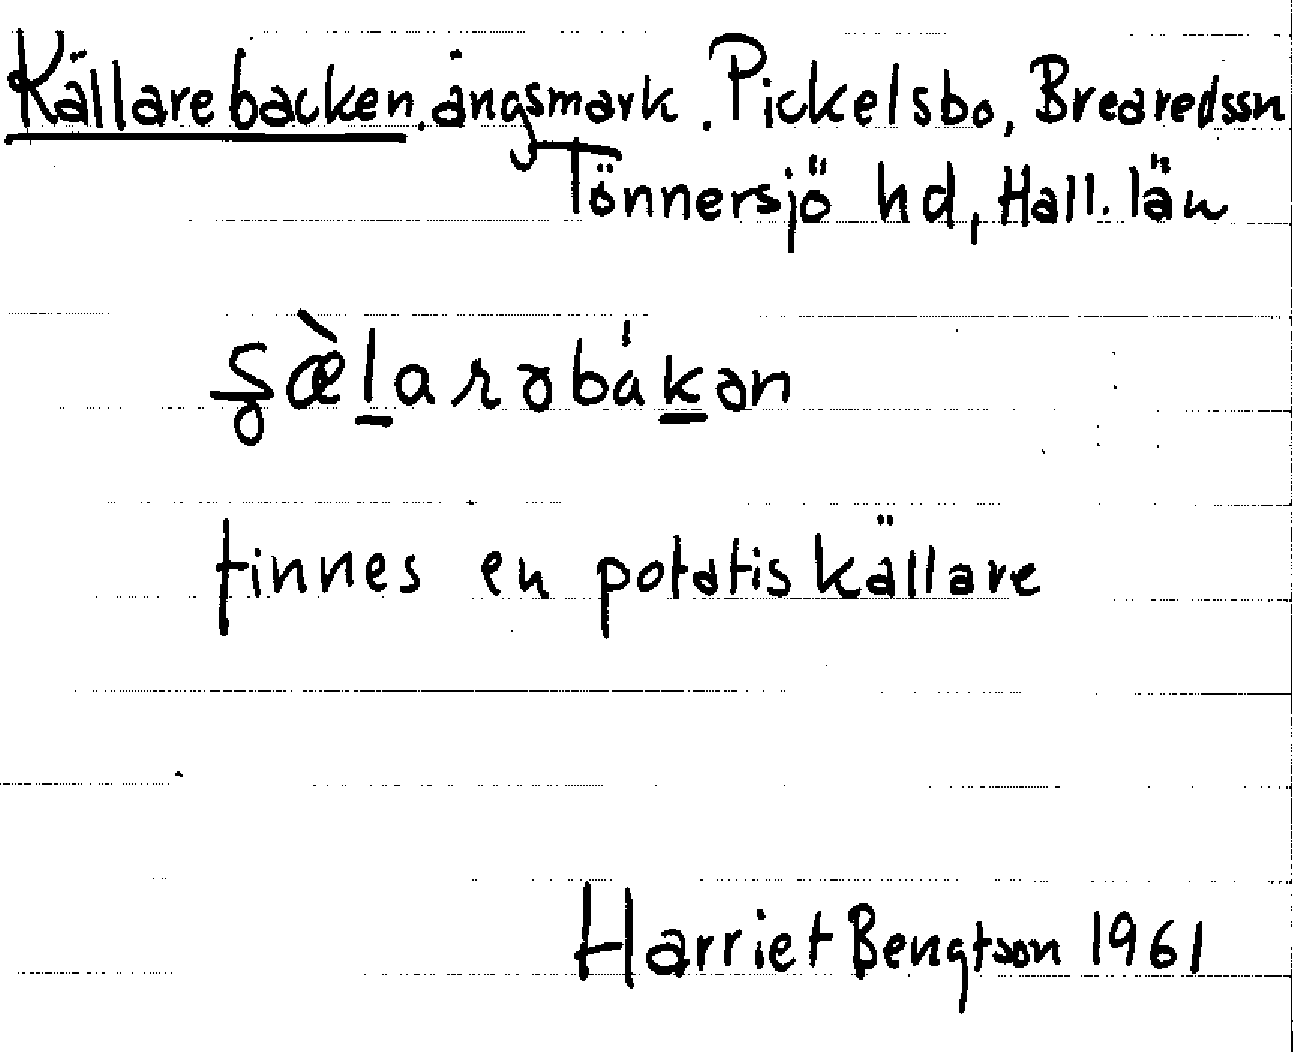 Källarebacken, ängsmark. Pickelsbo, Breared ssn
Tönnersjö hd, Hall. län
finnes en potatiskällare
Harriet Bengtson 1961